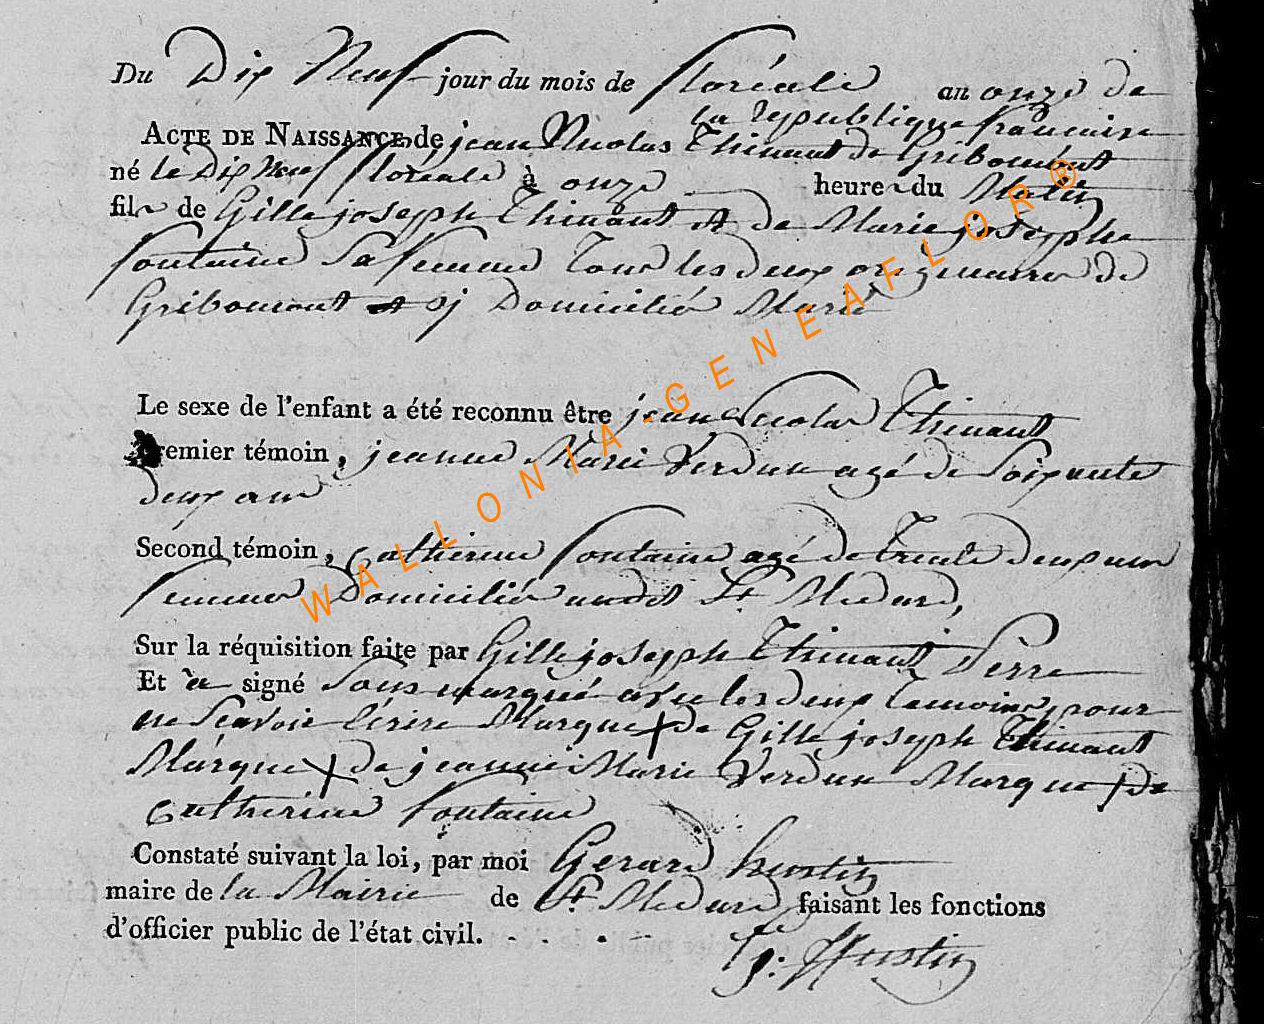 Du Dix Neuf jour du mois de floréale an onze de
la republique francaise
ACTE DE NAISSANCE de jean Nicolas Thinant de Gribomont
né le Dix Neuf floréale à onze heure du Matin
fils de Gille joseph Thinant et de Marie josephe
fontaine Sa femme Tous les deux originaire de
Gribomont et y Domicilié Marié
Le sexe de l'enfant a été reconnu être jean Nicolas Thinant
Premier témoin, jeanne Marie Verdun agé de Soixante
deux ans
Second témoin, Catherine fontaine agé de trente deux ans
femmes Domicilié audit St Medard,
Sur la réquisition faite par Gille joseph Thinant Perre
Et a signé Sous marqué avec les deux temoins pour
ne Scavoir l'écrire Marque + de Gille joseph Thinant
Marque + de jeanne Marie Verdun Marque + de
Catherine fontaine
Constaté suivant la loi, par moi Gerard hustin
maire de la Mairie de St Medard faisant les fonctions
d'officier public de l'état civil.
g: Hustin
WALLONIA-GENEAFLOR®